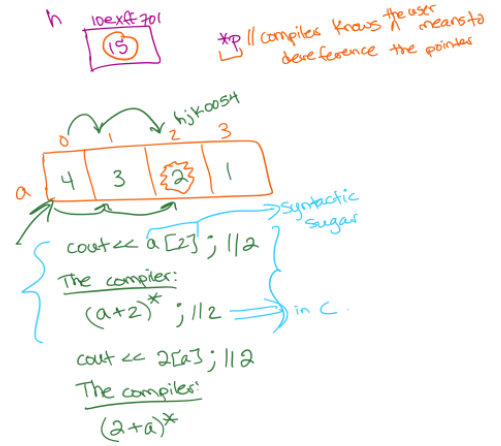 h 10exff701
15
*p // compiler knows the user means to
dereference the pointer
hjk0054
0 1 2 3
a 4 3 2 1
syntactic
sugar
cout << a[2]; //2
The compiler:
(a+2)* ; //2
in C.
cout << 2[a]; //2
The compiler:
(2+a)*